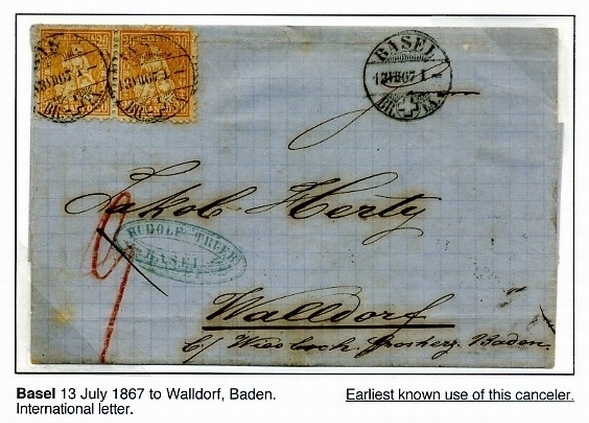 20
BASEL
13 VII 67 I -
BR. EXP.
Jakob Herty
RUDOLF
BASEL
Walldorf
b/ Wiesloch, Grosherz. Baden.
Basel 13 July 1867 to Walldorf, Baden. Earliest known use of this canceler.
International letter.